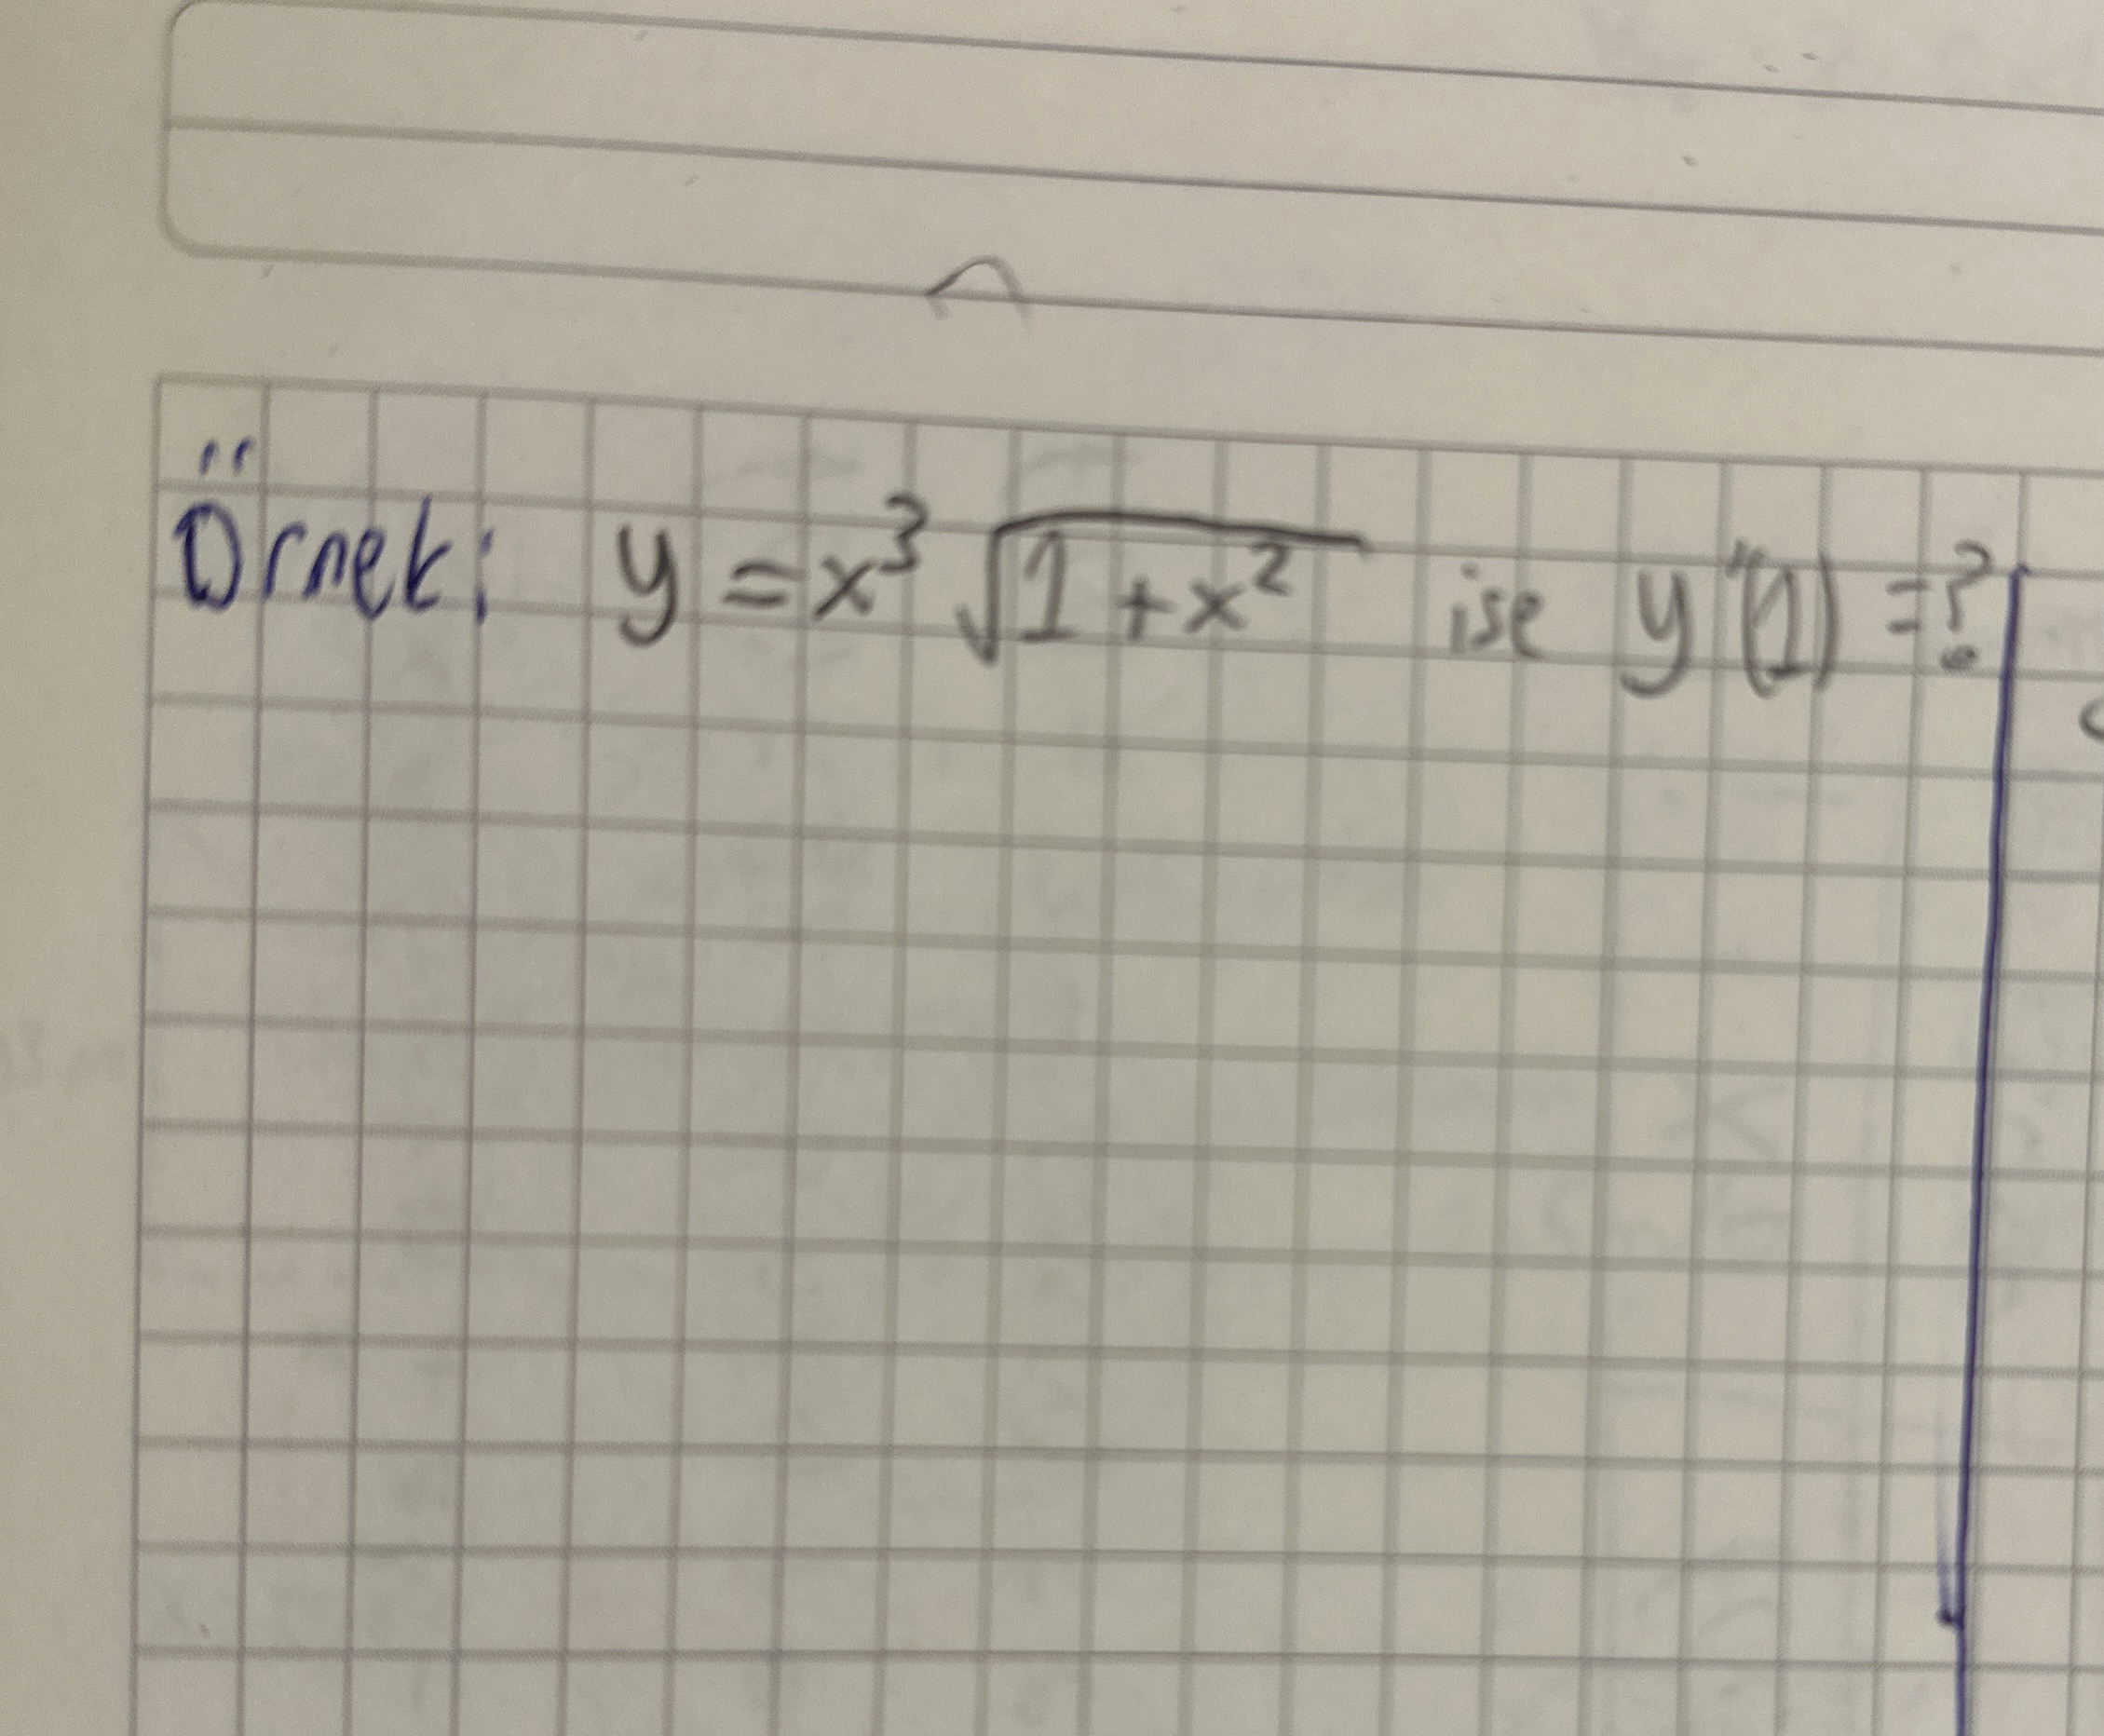 Örnek: y = x³ √(1+x²) ise y''(1) = ?